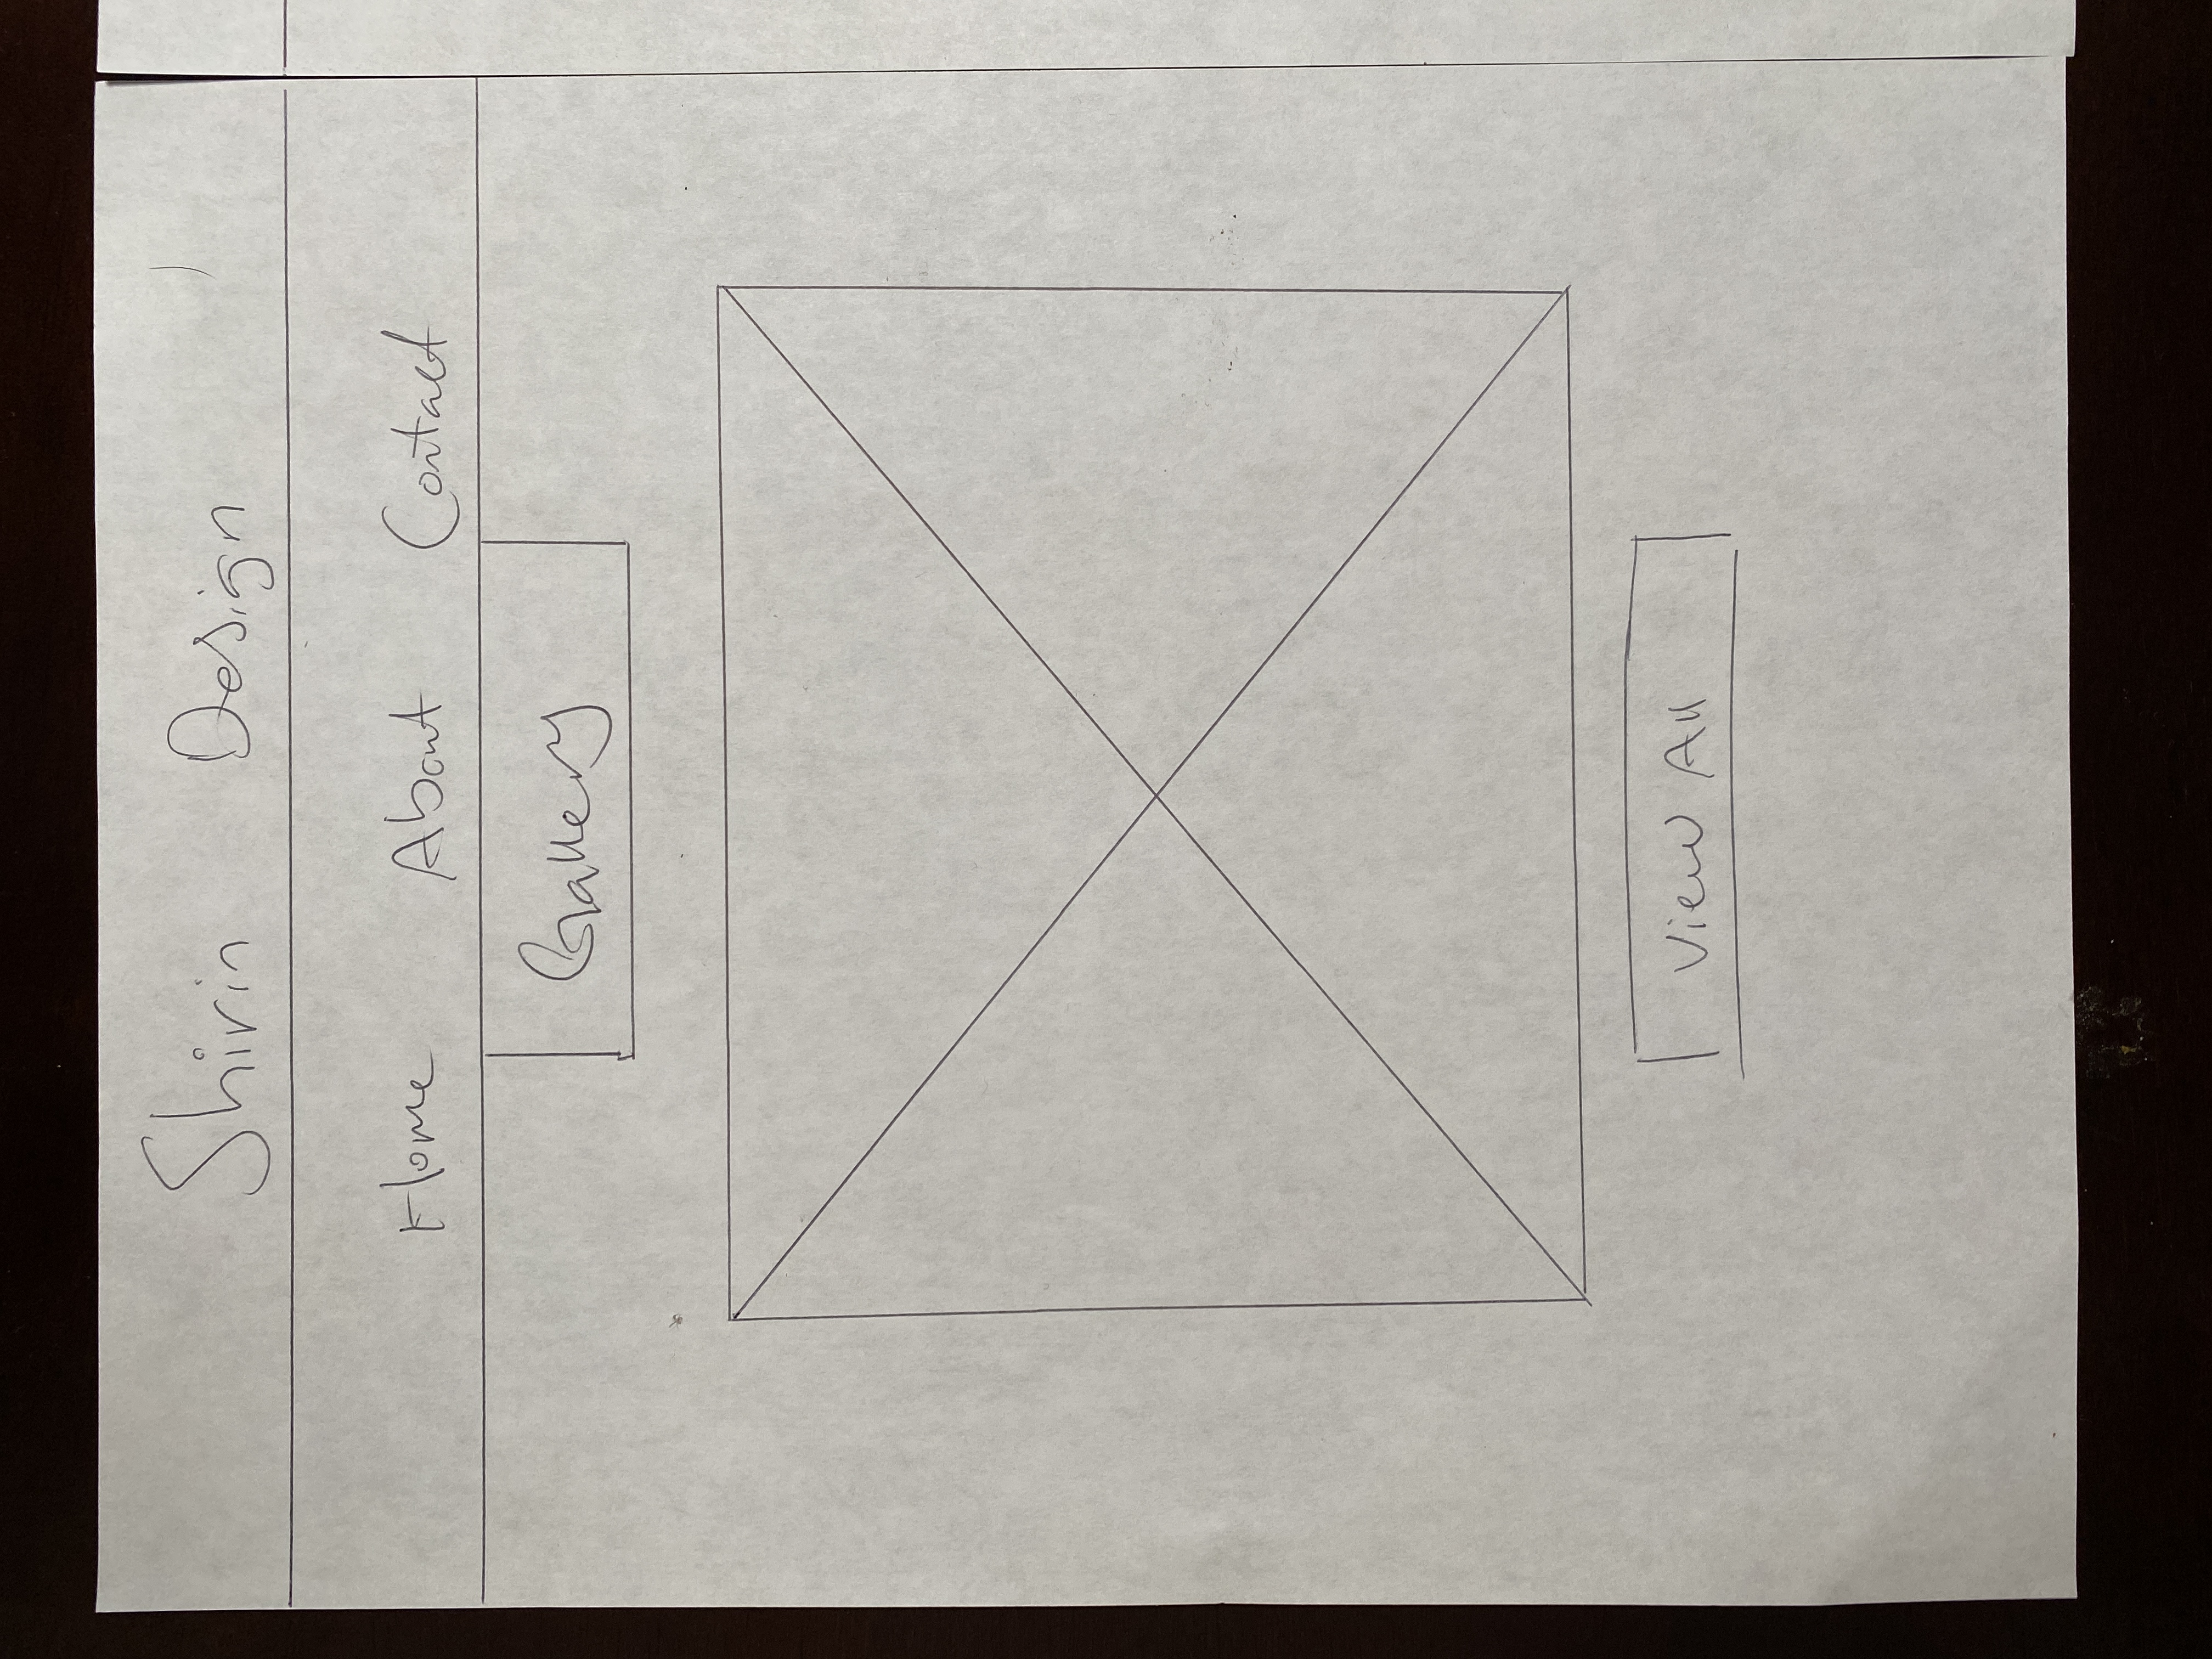 Shirin Design
Home About Contact
Gallery
View All